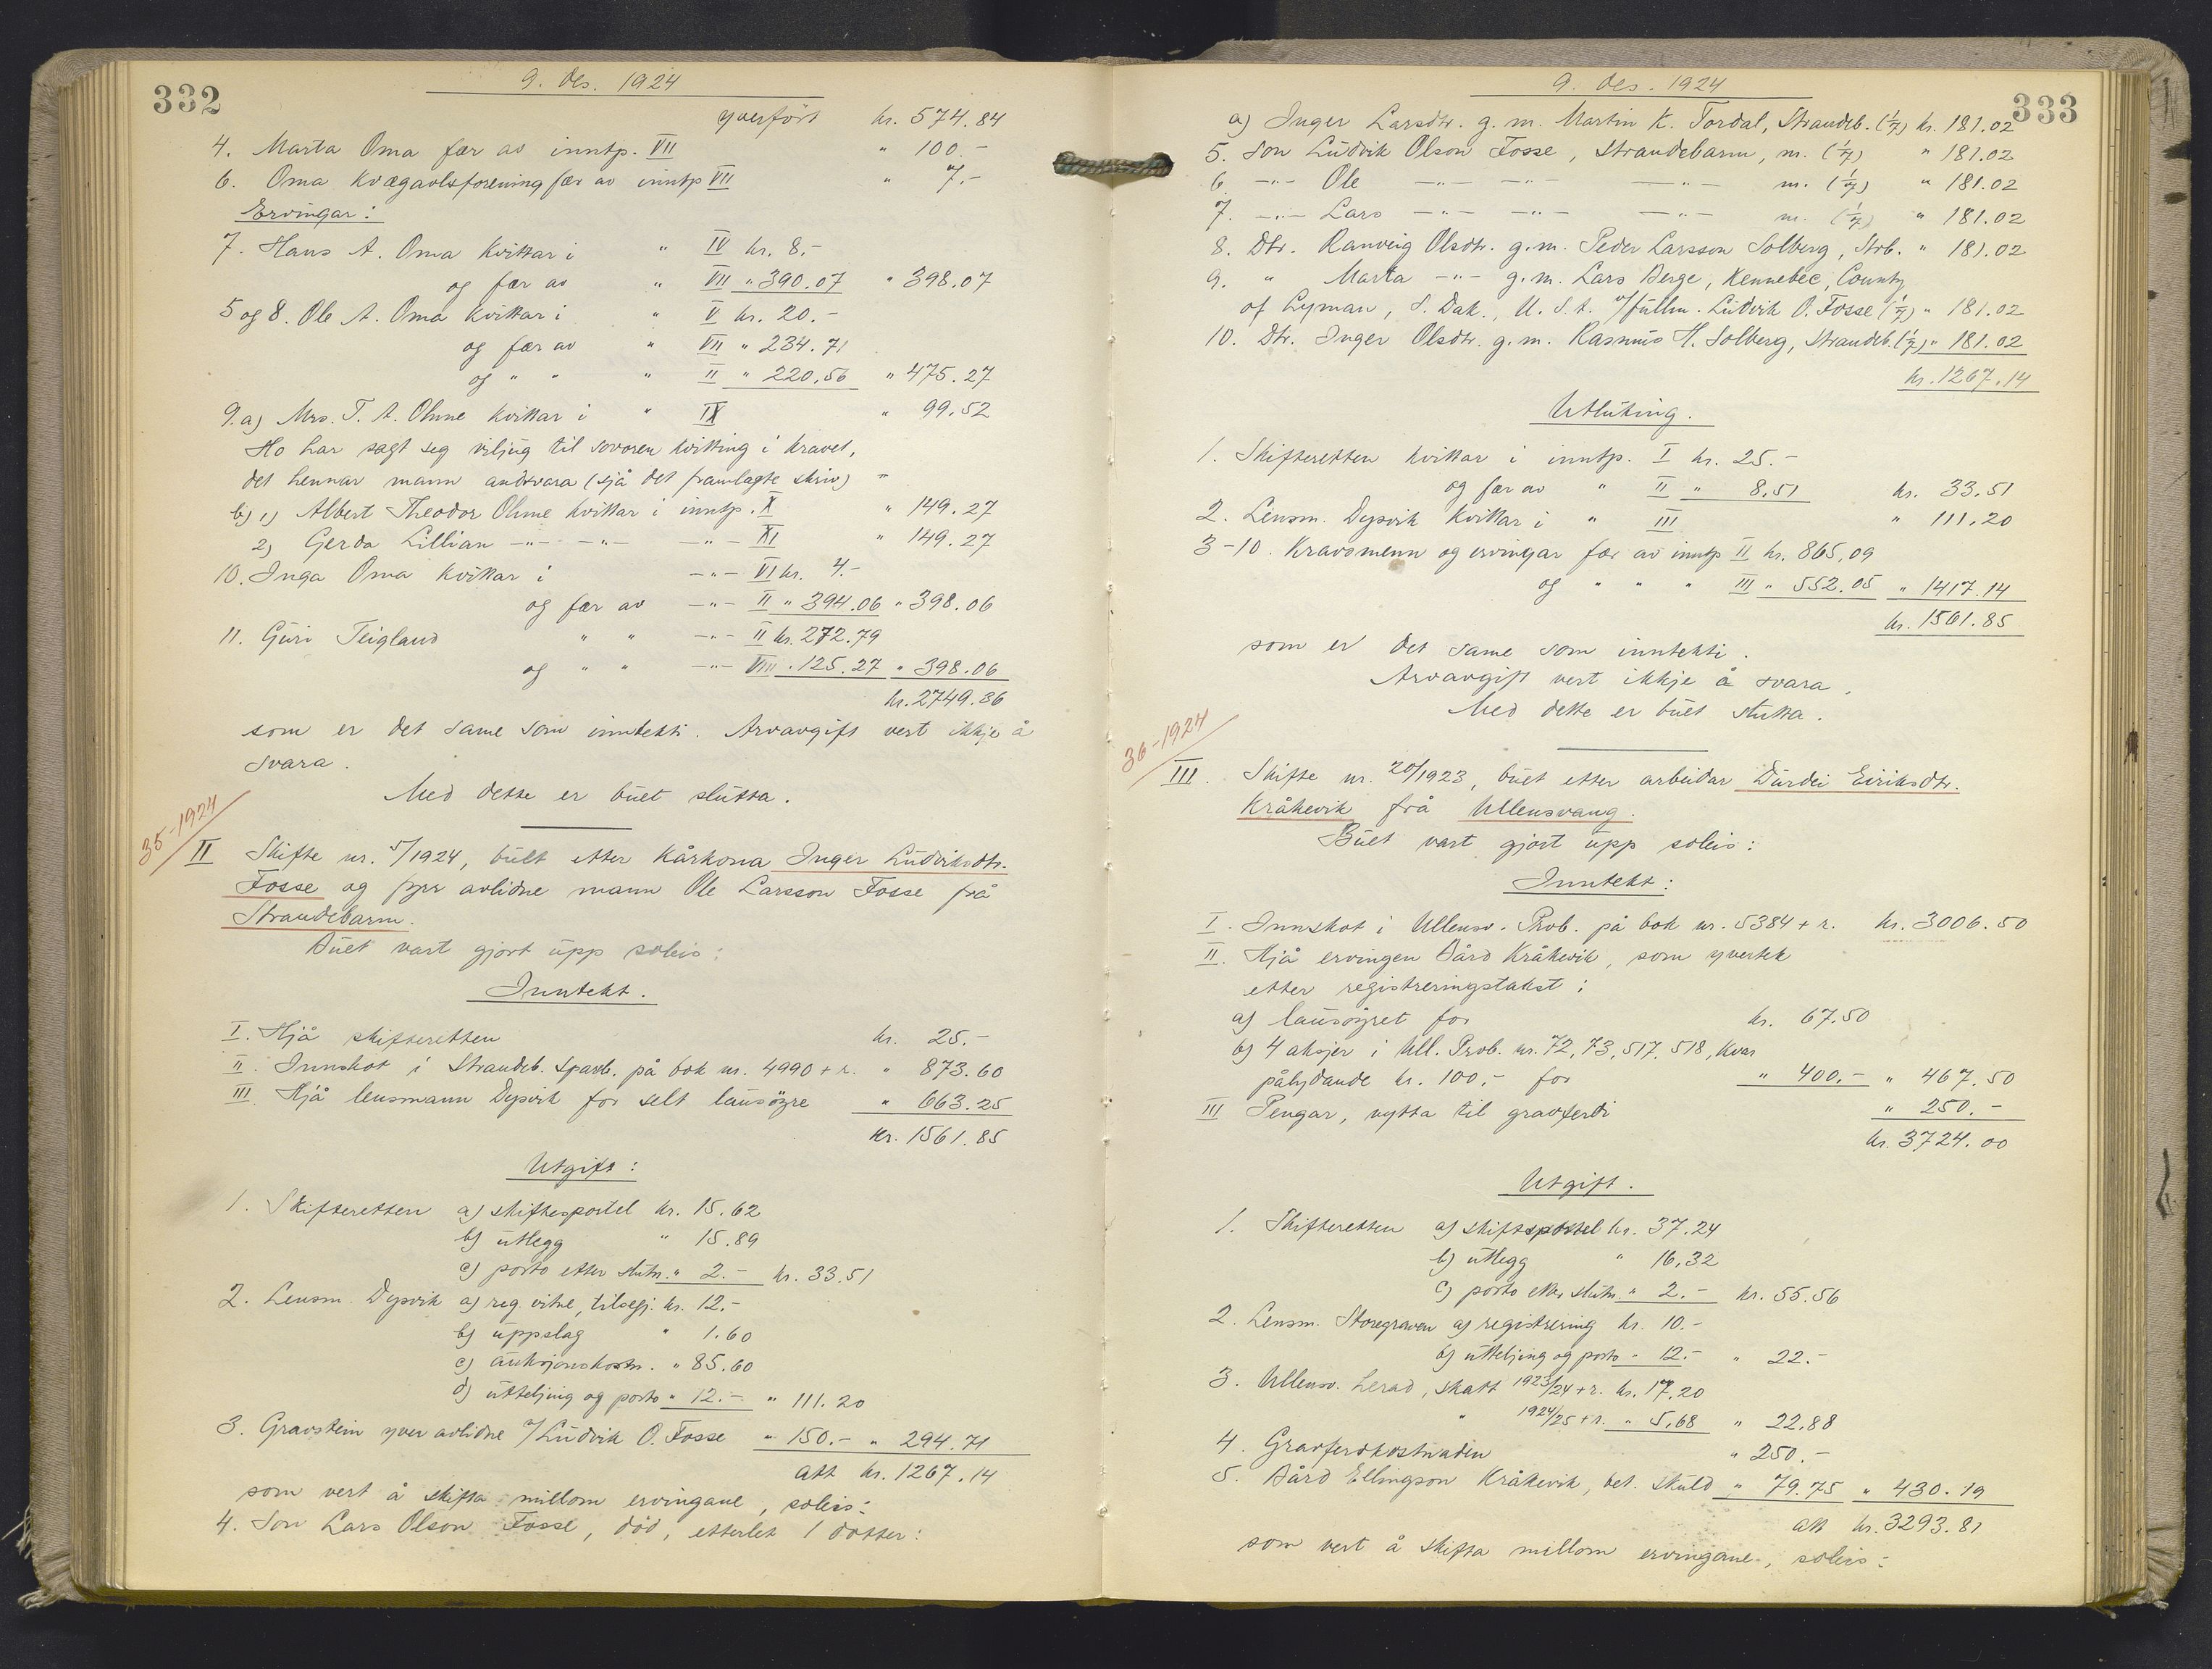 332
9. des. 1924
yverført kr. 574.84
4. Marta Oma fær av inntp. VII " 100.-
6. Oma Kvægavlsforening fær av inntp VII " 7.-
Ervingar:
7. Hans A. Oma kvittar i " IV kr. 8.-
og fær av " VII " 390.07 " 398.07
5 og 8. Ole A. Oma kvittar i " V kr. 20.-
og fær av " VII " 234.71
og " " " II " 220.56 " 475.27
9.a) Mrs. T. A. Ohme kvittar i " IX " 99.52
Ho har sagt seg viljug til sovoren kvitting i kravet,
det hennar mann andsvara (sjå det framlagte skriv) "
b) 1) Albert Theodor Ohme kvittar i inntp. X " 149.27
2) Gerda Lillian -"- -"- -"- XI " 149.27
10. Inga Oma kvittar i -"- VI kr. 4.-
og fær av -"- II " 394.06 " 398.06
11. Guri Teigland " " -"- II kr. 272.79
og " " -"- VIII " 125.27 " 398.06
kr. 2749.36
som er det same som inntekti. Arvavgift vert ikkje å
svara.
Med dette er buet slutta.
35-1924
II Skifte nr. 5/1924, buet etter kårkona Inger Ludviksdtr.
Fosse og fyrr avlidne mann Ole Larsson Fosse frå
Strandebarm.
Buet vart gjort upp soleis:
Inntekt.
I. Hjå skifteretten kr. 25.-
II. Innskot i Strandeb. Sparb. på bok nr. 4990 + r. " 873.60
III. Hjå lensmann Dysvik for selt lausøyre " 663.25
kr. 1561.85
Utgift:
1. Skifteretten a) skiftesportel kr. 15.62
b) utlegg " 15.89
c) porto etter slutn. " 2.- kr. 33.51
2. Lensm. Dysvik a) reg. vitne, tilsegj. kr. 12.-
b) uppslag " 1.60
c) auksjonskostn. " 85.60
d) utteljing og porto " 12.- " 111.20
3. Gravstein yver avlidne v/Ludvik O. Fosse " 150.- " 294.71
att kr. 1267.14
som vert å skifta millom ervingane, soleis:
4. Son Lars Olson Fosse, død, etterlet 1 dotter:
333
9. des. 1924
a) Inger Larsdtr. g. m. Martin K. Tordal, Strandeb. (1/7) kr. 181.02
5. Son Ludvik Olson Fosse, Strandebarm, m. (1/7) " 181.02
6. -"- Ole -"- -"- -"- m. (1/7) " 181.02
7. -"- Lars -"- -"- -"- m. (1/7) " 181.02
8. Dtr. Ranveig Olsdtr. g.m. Peder Larsson Solberg, Strb. " 181.02
9. " Marta -"- g.m. Lars Berge, Kennebec, County
of Lyman, S. Dak., U. S. A. v/fullm. Ludvik O. Fosse (1/7) " 181.02
10. Dtr. Inger Olsdtr. g.m. Rasmus H. Solberg, Strandeb. (1/7) " 181.02
kr. 1267.14
Utluting.
1. Skifteretten kvittar i inntp. I kr. 25.-
og fær av " II " 8.51 kr. 33.51
2. Lensm. Dysvik kvittar i " III " 111.20
3-10. Kravsmenn og ervingar fær av inntp II kr. 865.09
og " " " III " 552.05 " 1417.14
kr. 1561.85
som er det same som inntekti.
Arvavgift vert ikkje å svara.
Med dette er buet slutta.
36-1924
III. Skifte nr. 20/1923, buet etter arbeidar Durdei Eiriksdtr.
Kråkevik frå Ullensvang.
Buet vart gjort upp soleis:
Inntekt:
I. Innskot i Ullensv. Prb. på bok nr. 5384 + r. kr. 3006.50
II. Hjå ervingen Bård Kråkevik, som yvertek
etter registreringstakst:
a) lausøyret for kr. 67.50
b) 4 aksjer i Ull. Prb. nr. 72, 73, 517, 518, kvar
pålydande kr. 100,- for " 400.- " 467.50
III Pengar, nytta til gravferdi " 250.-
kr. 3724.00
Utgift.
1. Skifteretten a) skiftesportel kr. 37.24
b) utlegg " 16.32
c) porto etter slutn. " 2.- kr. 55.56
2. Lensm. Storegraven a) registrering kr. 10.-
b) utteljing og porto " 12.- " 22.-
3. Ullensv. herad, skatt 1923/24 + r. kr. 17.20
" 1924/25 + r. " 5.68 " 22.88
4. Gravferdkostnaden " 250.-
5. Bård Ellingson Kråkevik, bet. skuld " 79.75 " 430.19
att kr. 3293.81
som vert å skifta millom ervingane, soleis: